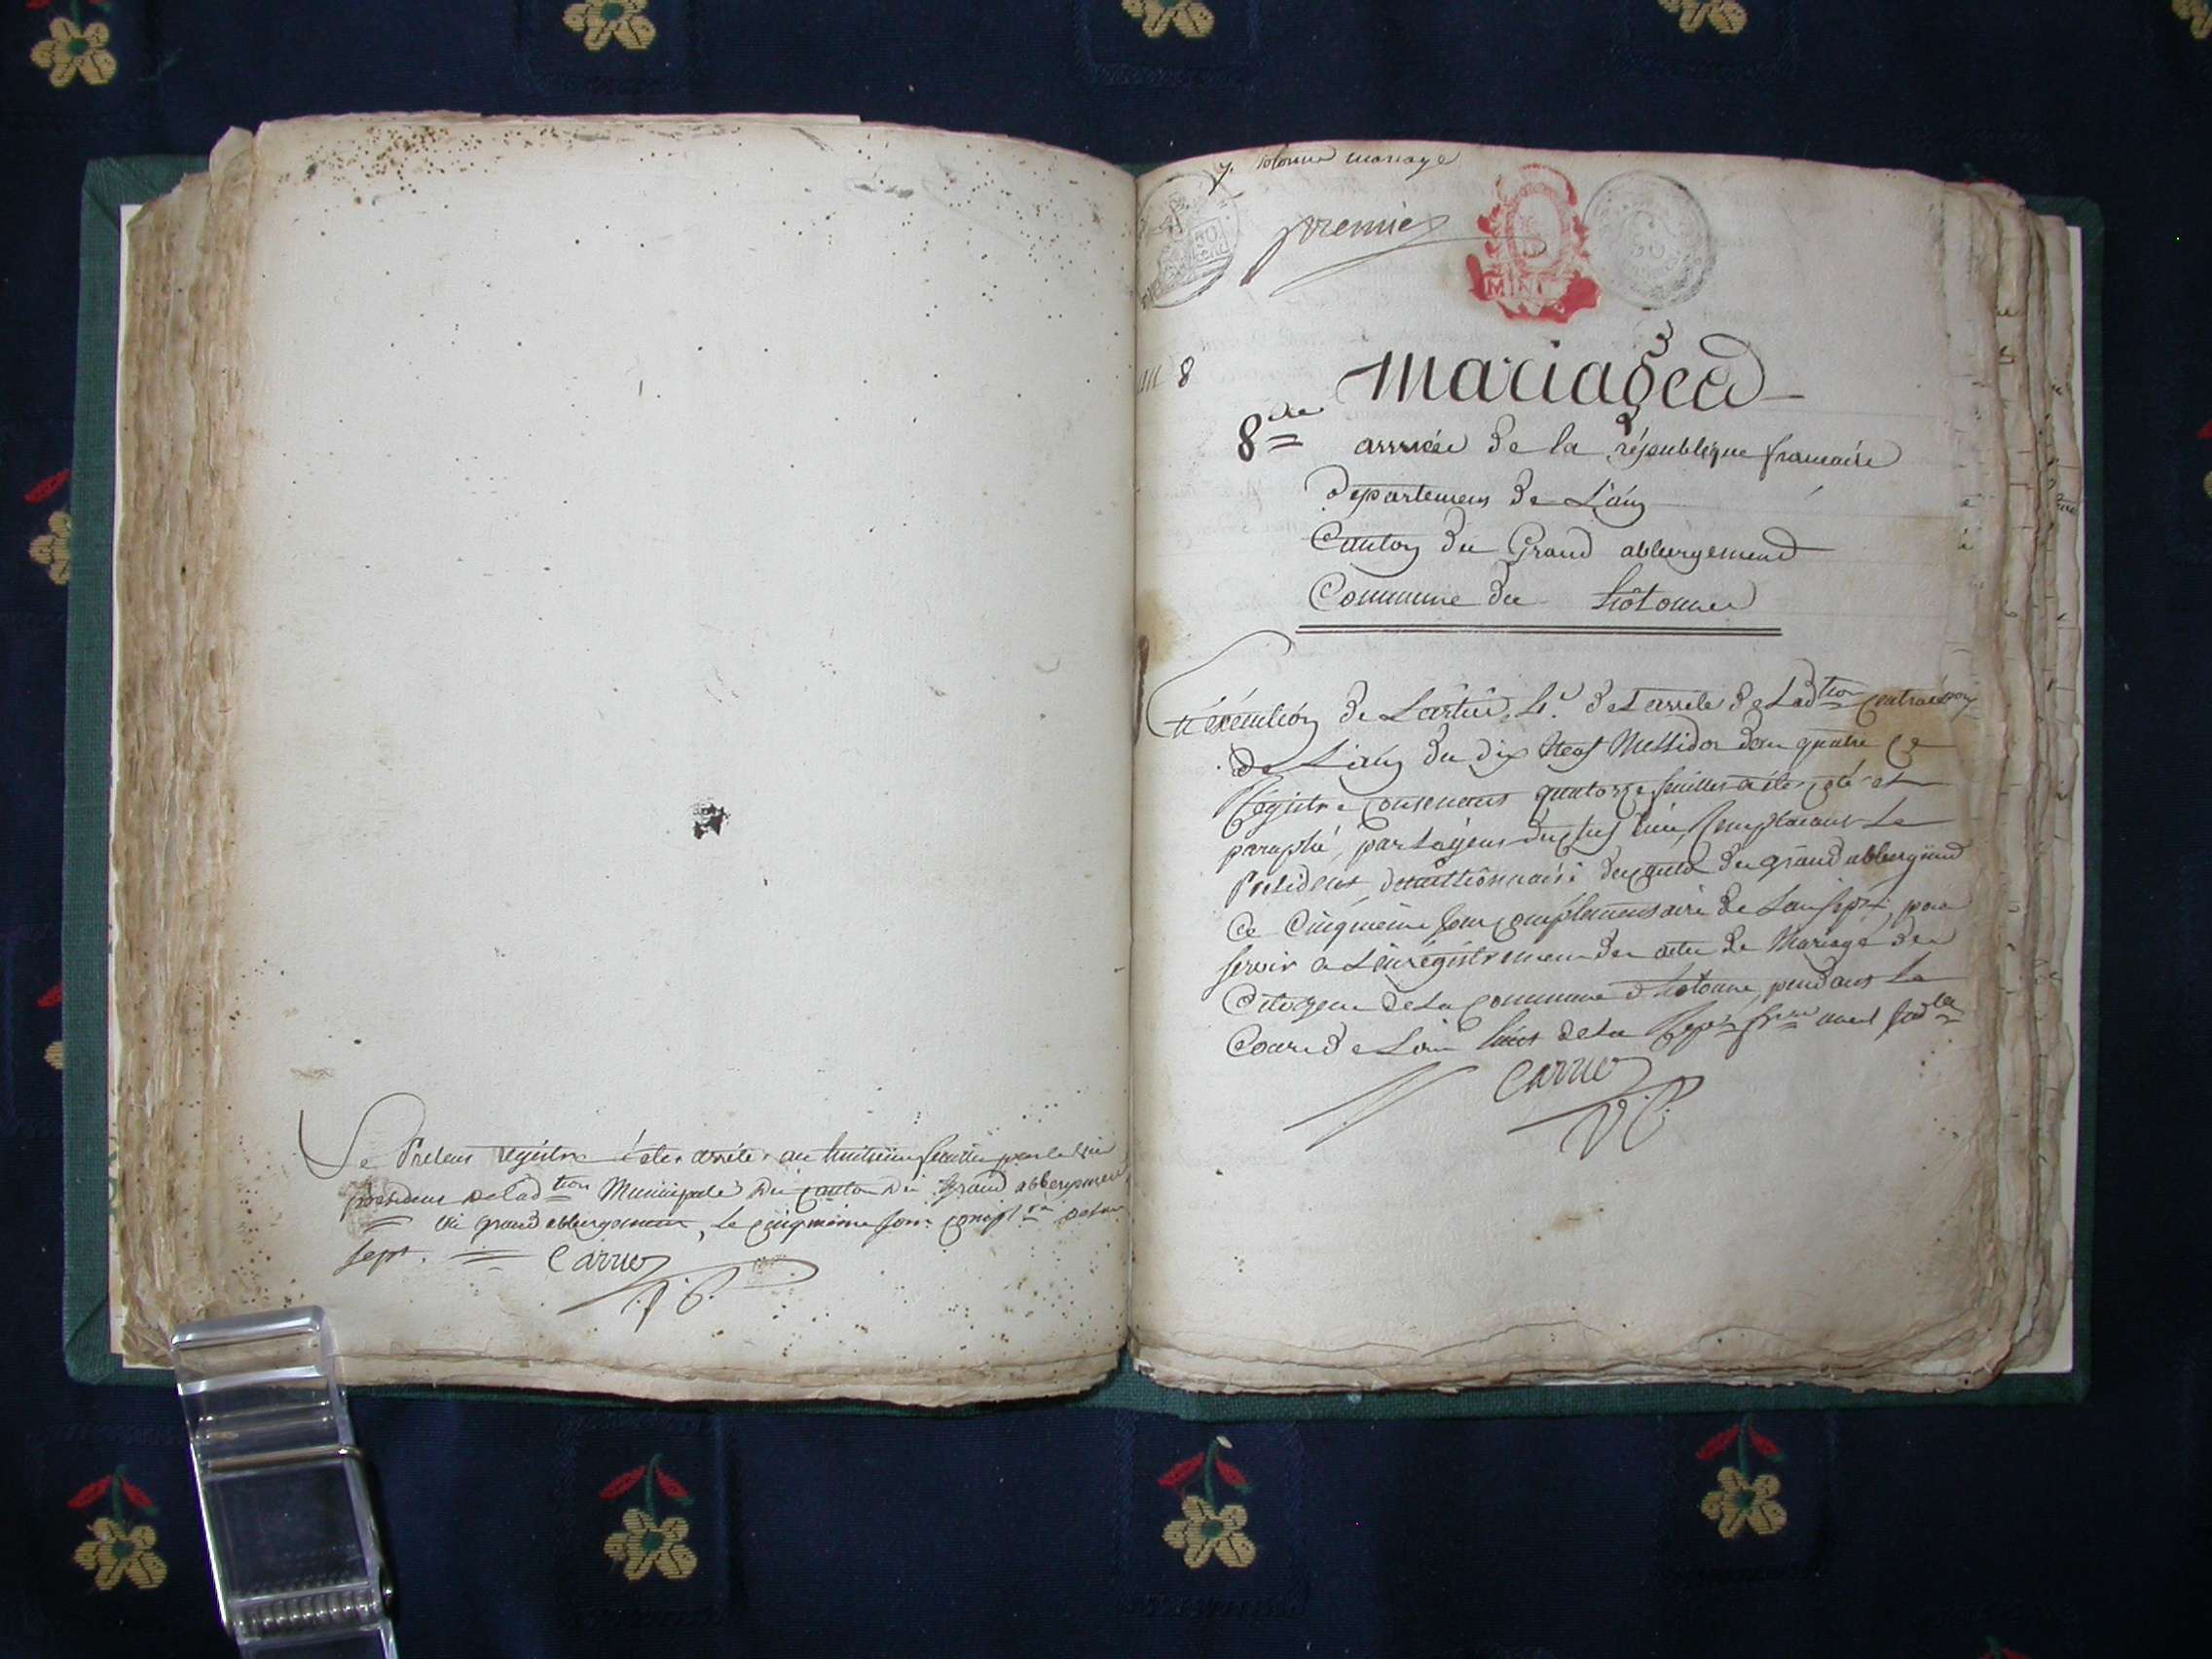 Le present registre a été arrêté au huitieme feuillet par le vice
president de l'ad.tion Municipale du canton du grand abbergement
au grand abbergement, le cinquieme jour compl.re de l'an
sept. Carrier
V.P.
7. hotonne mariage
premier
MIN
an 8
Mariages
8.me année de la république francaise
Departement de L'ain
Canton du Grand abbergement
Commune de hôtonne
En éxécution de L'article 4.e de l'arrêté de L'ad.tion centrale
de L'ain du dix Neuf Messidor d'an quatre ce
Régistre contenant quatorze feuilles a été coté et
paraphé, par Remplacant Le
President du canton du grand abbergement
Ce Cinquieme jour complementaire de L'an sept pour
servir a L'enrégistrement des actes de Mariage des
Citoyens de La Commune d'hotonne, pendant Le
Cours de L'an huit de La Rep. fr.
Carrier
V.P.